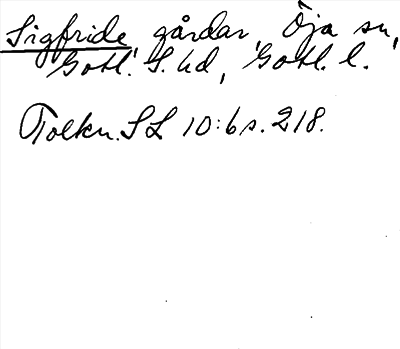 Sigfride, gårdar, Öja sn,
Gotl. S. hd, Gotl. l.
Tolkn. SL 10:6 s. 218.